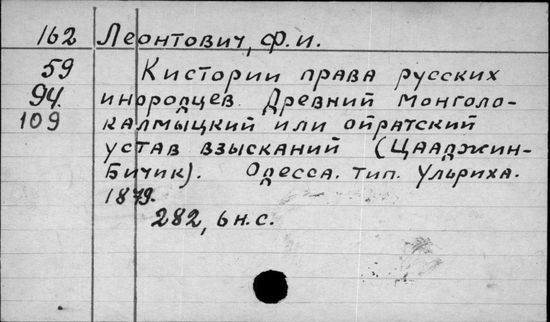 162 Леонтович, Ф. и.
59 Кистории права русских
94. инородцев. Древний Монголо-
109 калмыцкий или ойратский
устав взысканий (Цааджин-
Бичик). Одесса. тип. Ульриха.
1879.
282, 6 н. с.